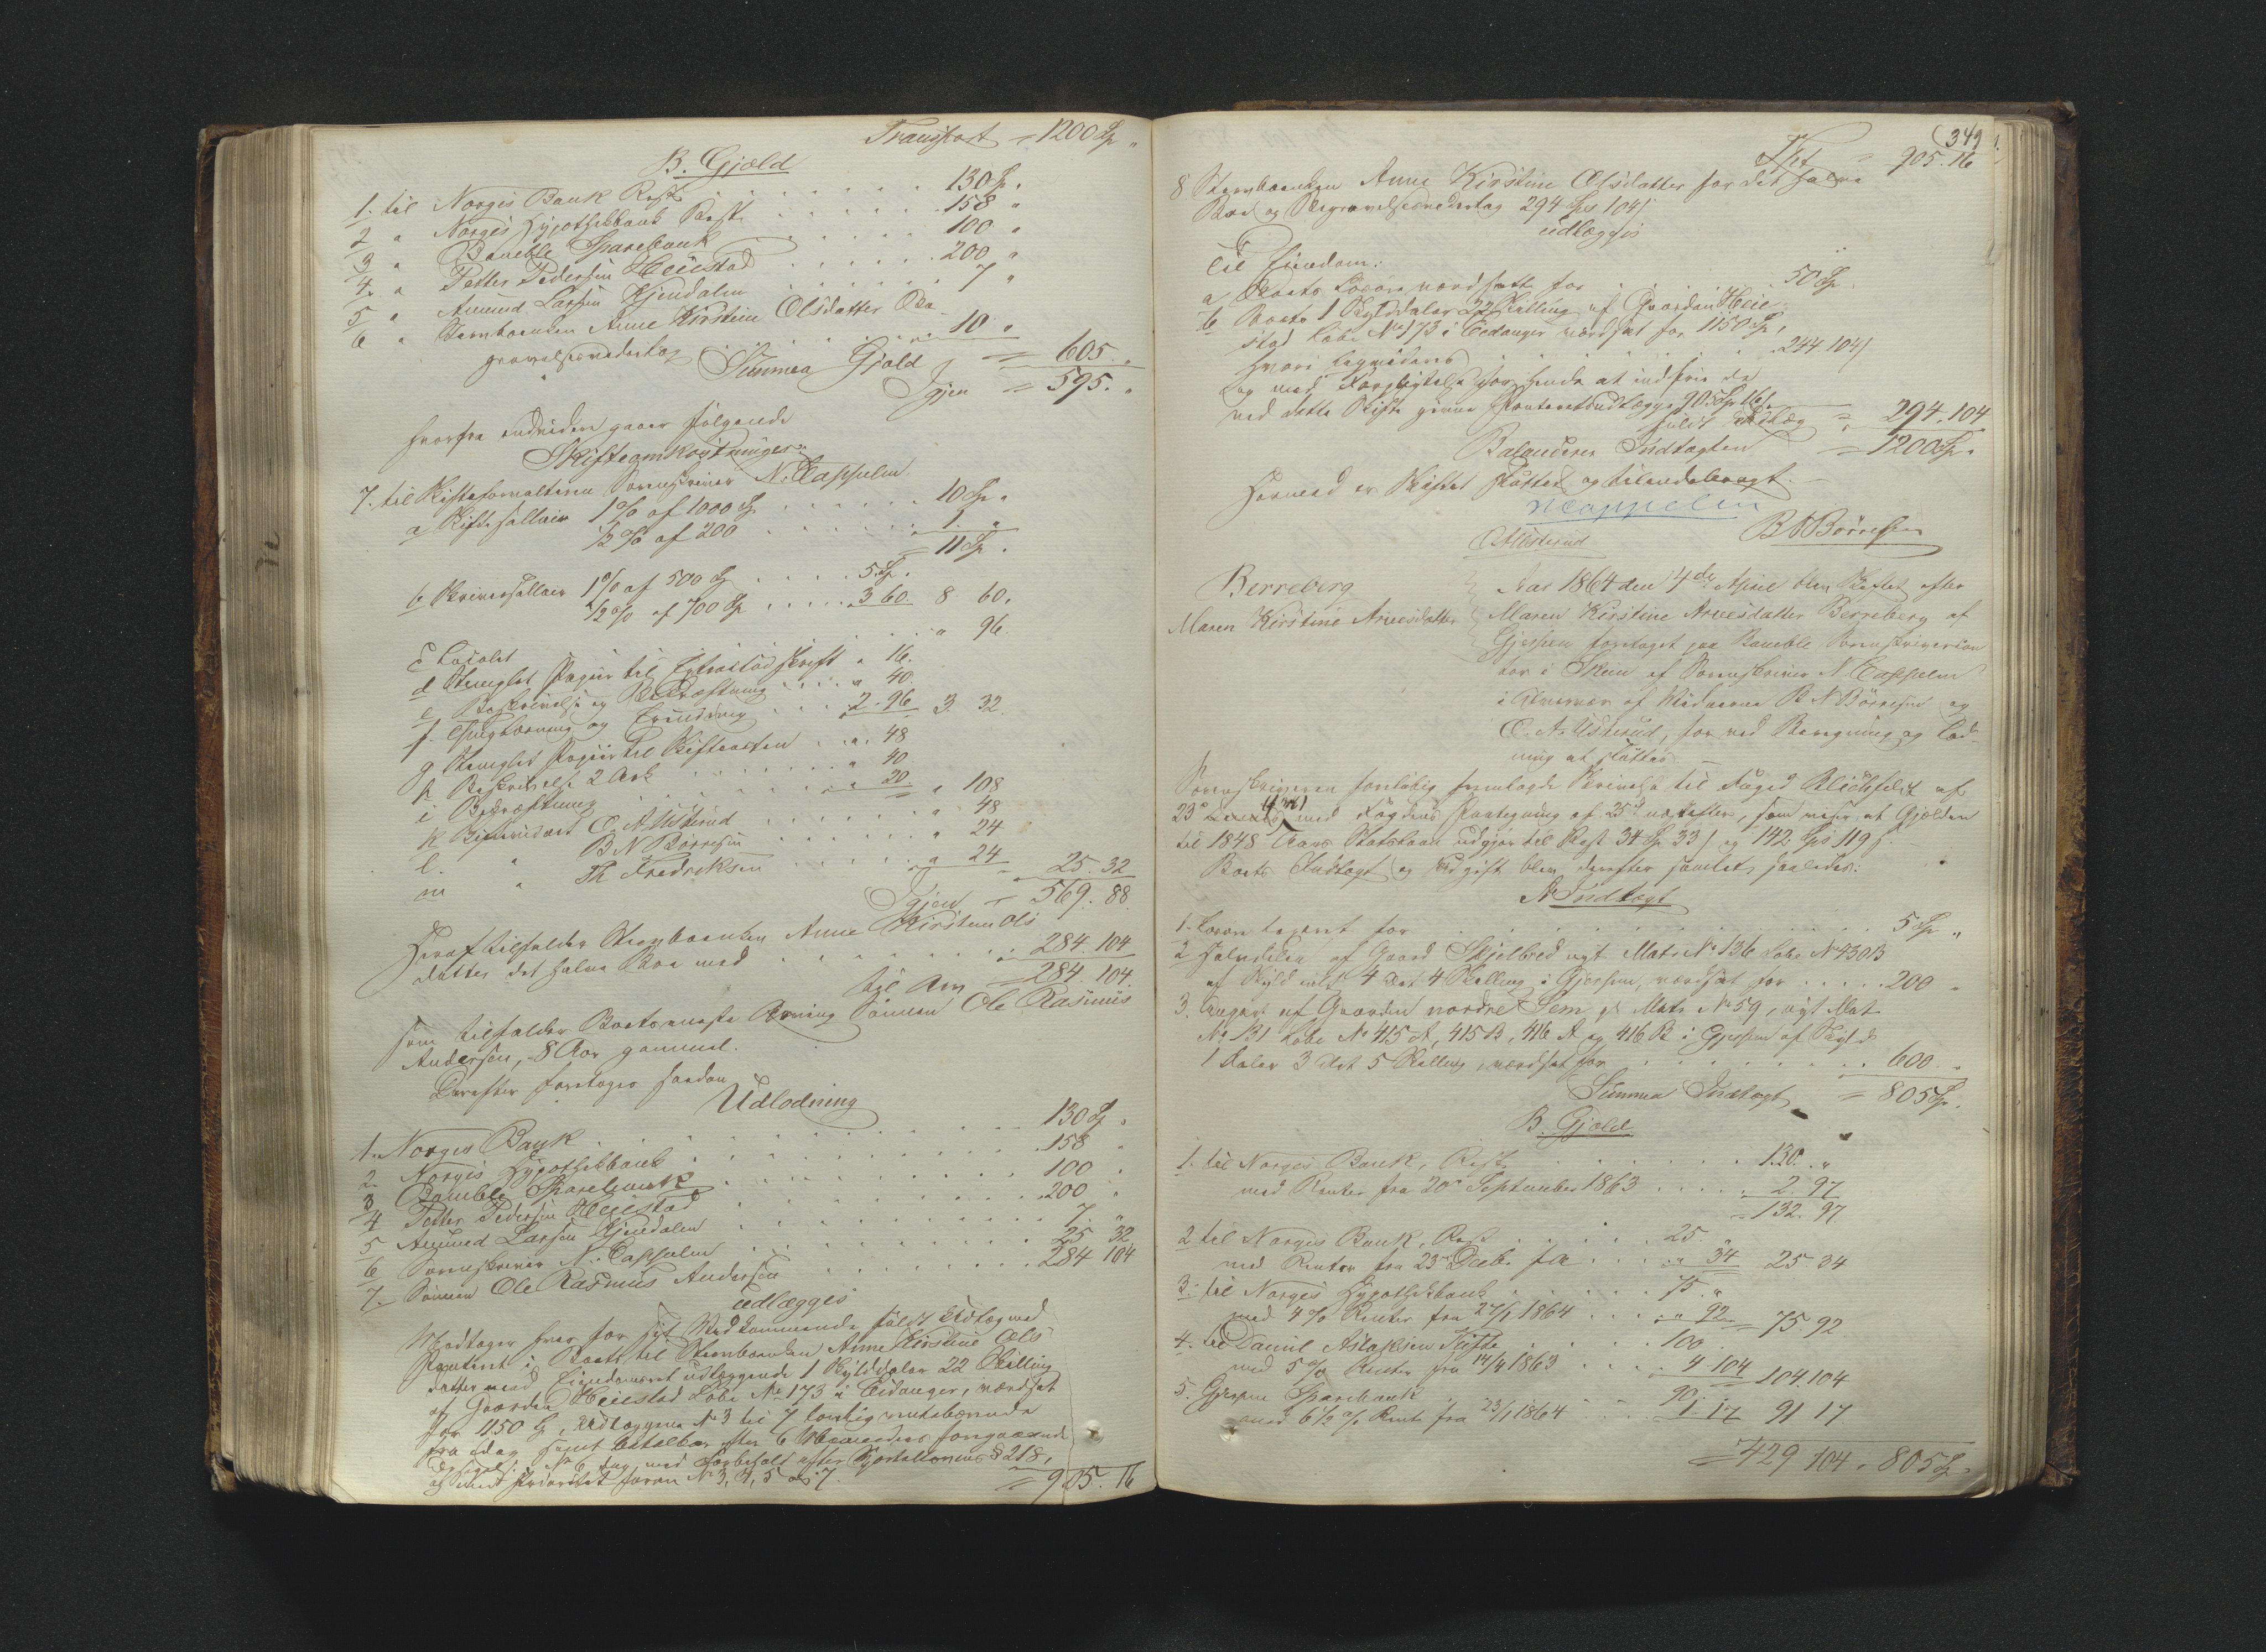 Transport = 1200 Sp "
B. Gjæld
1. til Norges Bank Rest . . . 130 Sp "
2 " Norges Hypothekbank Rest . . . 158 "
3 " Bamble Sparebank . . . 100 "
4. " Petter Pedersen Heiestad . . . 200 "
5 " Amund Larsen Gjendalen . . . 7 "
6 " Stervboenken Anne Kirstine Olsdatter Be-
gravelsesvederlag . . . 10 "
Summa Gjæld = 605. "
Igjen = 595. "
hvorfra endvidere gaaer følgende
Skifteomkostninger:
7. til Skifteforvalteren Sorenskriver N. Cappelen
a Skiftesallair 1 % af 1000 Sp . . . 10 Sp "
1/2 % af 200 . . . 1 "
= 11 Sp.
b Skriversallair 1 % af 500 Sp . . . 5 Sp.
1/2 % af 700 Sp . . . 3 60. 8 60.
c Localet . . . " 96.
d Stemplet Papir til Extraktudskrift " 16.
e Beskrivelse og Bekræftning . . . " 40.
f. Thinglæsning og . . . 2. 96 3. 32.
g Stemplet Papir til Skifteacten . . " 48
h Beskrivelse 2 Ark . . . " 40
i Bekræftning . . . " 20 " 108
k Skiftevidnet O. A. Usterud . . . " 48
l. " B N Børresen . . . " 24
m " Th Fredriksen . . . " 24 25. 32
Igjen = 569. 88
Heraf tilfalder Stervboenken Anne Kirstine Ols
datter det halve Boe med . . . 284. 104
til Arv = 284. 104.
som tilfalder Boets eneste Arving Sønnen Ole Rasmus
Andersen, 8 Aar gammel.
Derefter foretoges saadan
Udlodning
1. Norges Bank . . . 130 Sp "
2. Norges Hypothekbank . . . 158 "
3 Bamble Sparebank . . . 100 "
4 Petter Pedersen Heiestad . . . 200 "
5 Amund Larsen Gjendalen . . . 7. "
6 Sorenskriver N. Cappelen . . . 25. 32
7. Sønnen Ole Rasmus Andersen . . . 284 104
udlægges
Modtager hver for sit Vedkommende fuldt Udlæg med
Panteret i Boets til Stervboenken Anne Kirstine Ols
datter med Eiendomsret udlæggende 1 Skylddaler 22 Skilling
af Gaarden Heiestad Løbe No 173 i Eidanger, værdsat
for 1150 Sp, Udlæggene No 3 til 7 lovlig rentebærende
fra idag samt betalbar efter 6 Maaneders forgaaende
Opsigelse, No 6 dog med Forbehold efter Sportellovens § 218,
og med Prioritet foran No 3, 4, 5 og 7. = 905. 16
349
Tpt = 905. 16
8 Stervboenken Anne Kirstine Olsdatter for det halve
Boe og Begravelsesvederlag 294 Sps 104 s
udlægges
til Eiendom:
a Boets Løsøre værdsatt for . . . 50 Sp.
b Boets 1 Skylddaler 22 Skilling af Gaarden Heie-
stad Løbe No 173 i Eidanger værdsat for 1150 Sp,
hvori beregnes . . . 244 104 s
og med Forpligtelse for hende at indfrie de
ved dette Skifte givne Panteretsudlægge 905 Sp 16 s.
fuldt Udlæg = 294. 104
Balancerer Indtægten = 1200 Sp.
Hermed er Skiftet sluttet og tilendebragt. —
N Cappelen
OAUsterud BNBörresen
Berreberg
Maren Kirstine Arnesdatter
Aar 1864 den 4de April blev Skiftet efter
Maren Kirstine Arnesdatter Berreberg af
Gjerpen foretaget paa Bamble Sorenskriverkon-
tor i Skien af Sorenskriver N Cappelen
i Overvær af Vidnerne B N Börresen og
O. A. Usterud, for ved Beregning og Lod-
ning at sluttes. —
Sorenskriveren foreløbig fremlagde Skrivelse til Foged Blichfeldt af
23de med Fogdens Paategning af 25de næstefter, som viser at Gjælden
til 1848 Aars Statslaan udgjør til Rest 34 Sp 33 s og 142 Sps 119 s.
Boets Indtægt og Udgift blev derefter samlet saaledes:
A Indtægt
1. Løsøre beregnet for . . . 5 Sp "
2 Halvdelen af Gaard Skjelbred nyt Matr No 136 Løbe No 430B
af Skyld 4 Ort 4 Skilling i Gjerpen, værdsat for . . . 200 "
3. Angaar af Gaarden nordre Sem gl Matr No 59, nyt Mat
No 131 Løbe No 415 A, 415 B, 416 A og 416 B i Gjerpen af Skyld
1 Daler 3 Ort 5 Skilling, værdsat for . . . 600 "
Summa Indtægt = 805 Sp.
B. Gjæld
1. til Norges Bank, Rest . . . 130. "
med Renter fra 20de September 1863 . . . 2. 97
= 132. 97.
2 til Norges Bank, Rest . . . 25 "
med Renter fra 23de Decbr f A . . . " 34 25 34
3. til Norges Hypothekbank . . . 75. "
med 4 % Renter fra 27/1 1864 . . . " 92 = 75. 92
4. til Daniel Aslaksen Kiste . . . 100
med 5 % Renter fra 14/4 1863 . . . 4 104 104. 104
5. Gjerpen Sparebank . . . 90. "
med 6 1/2 % Rente fra 23/1 1864 . . . 1. 17 91 17
= 429 104. 805 Sp.